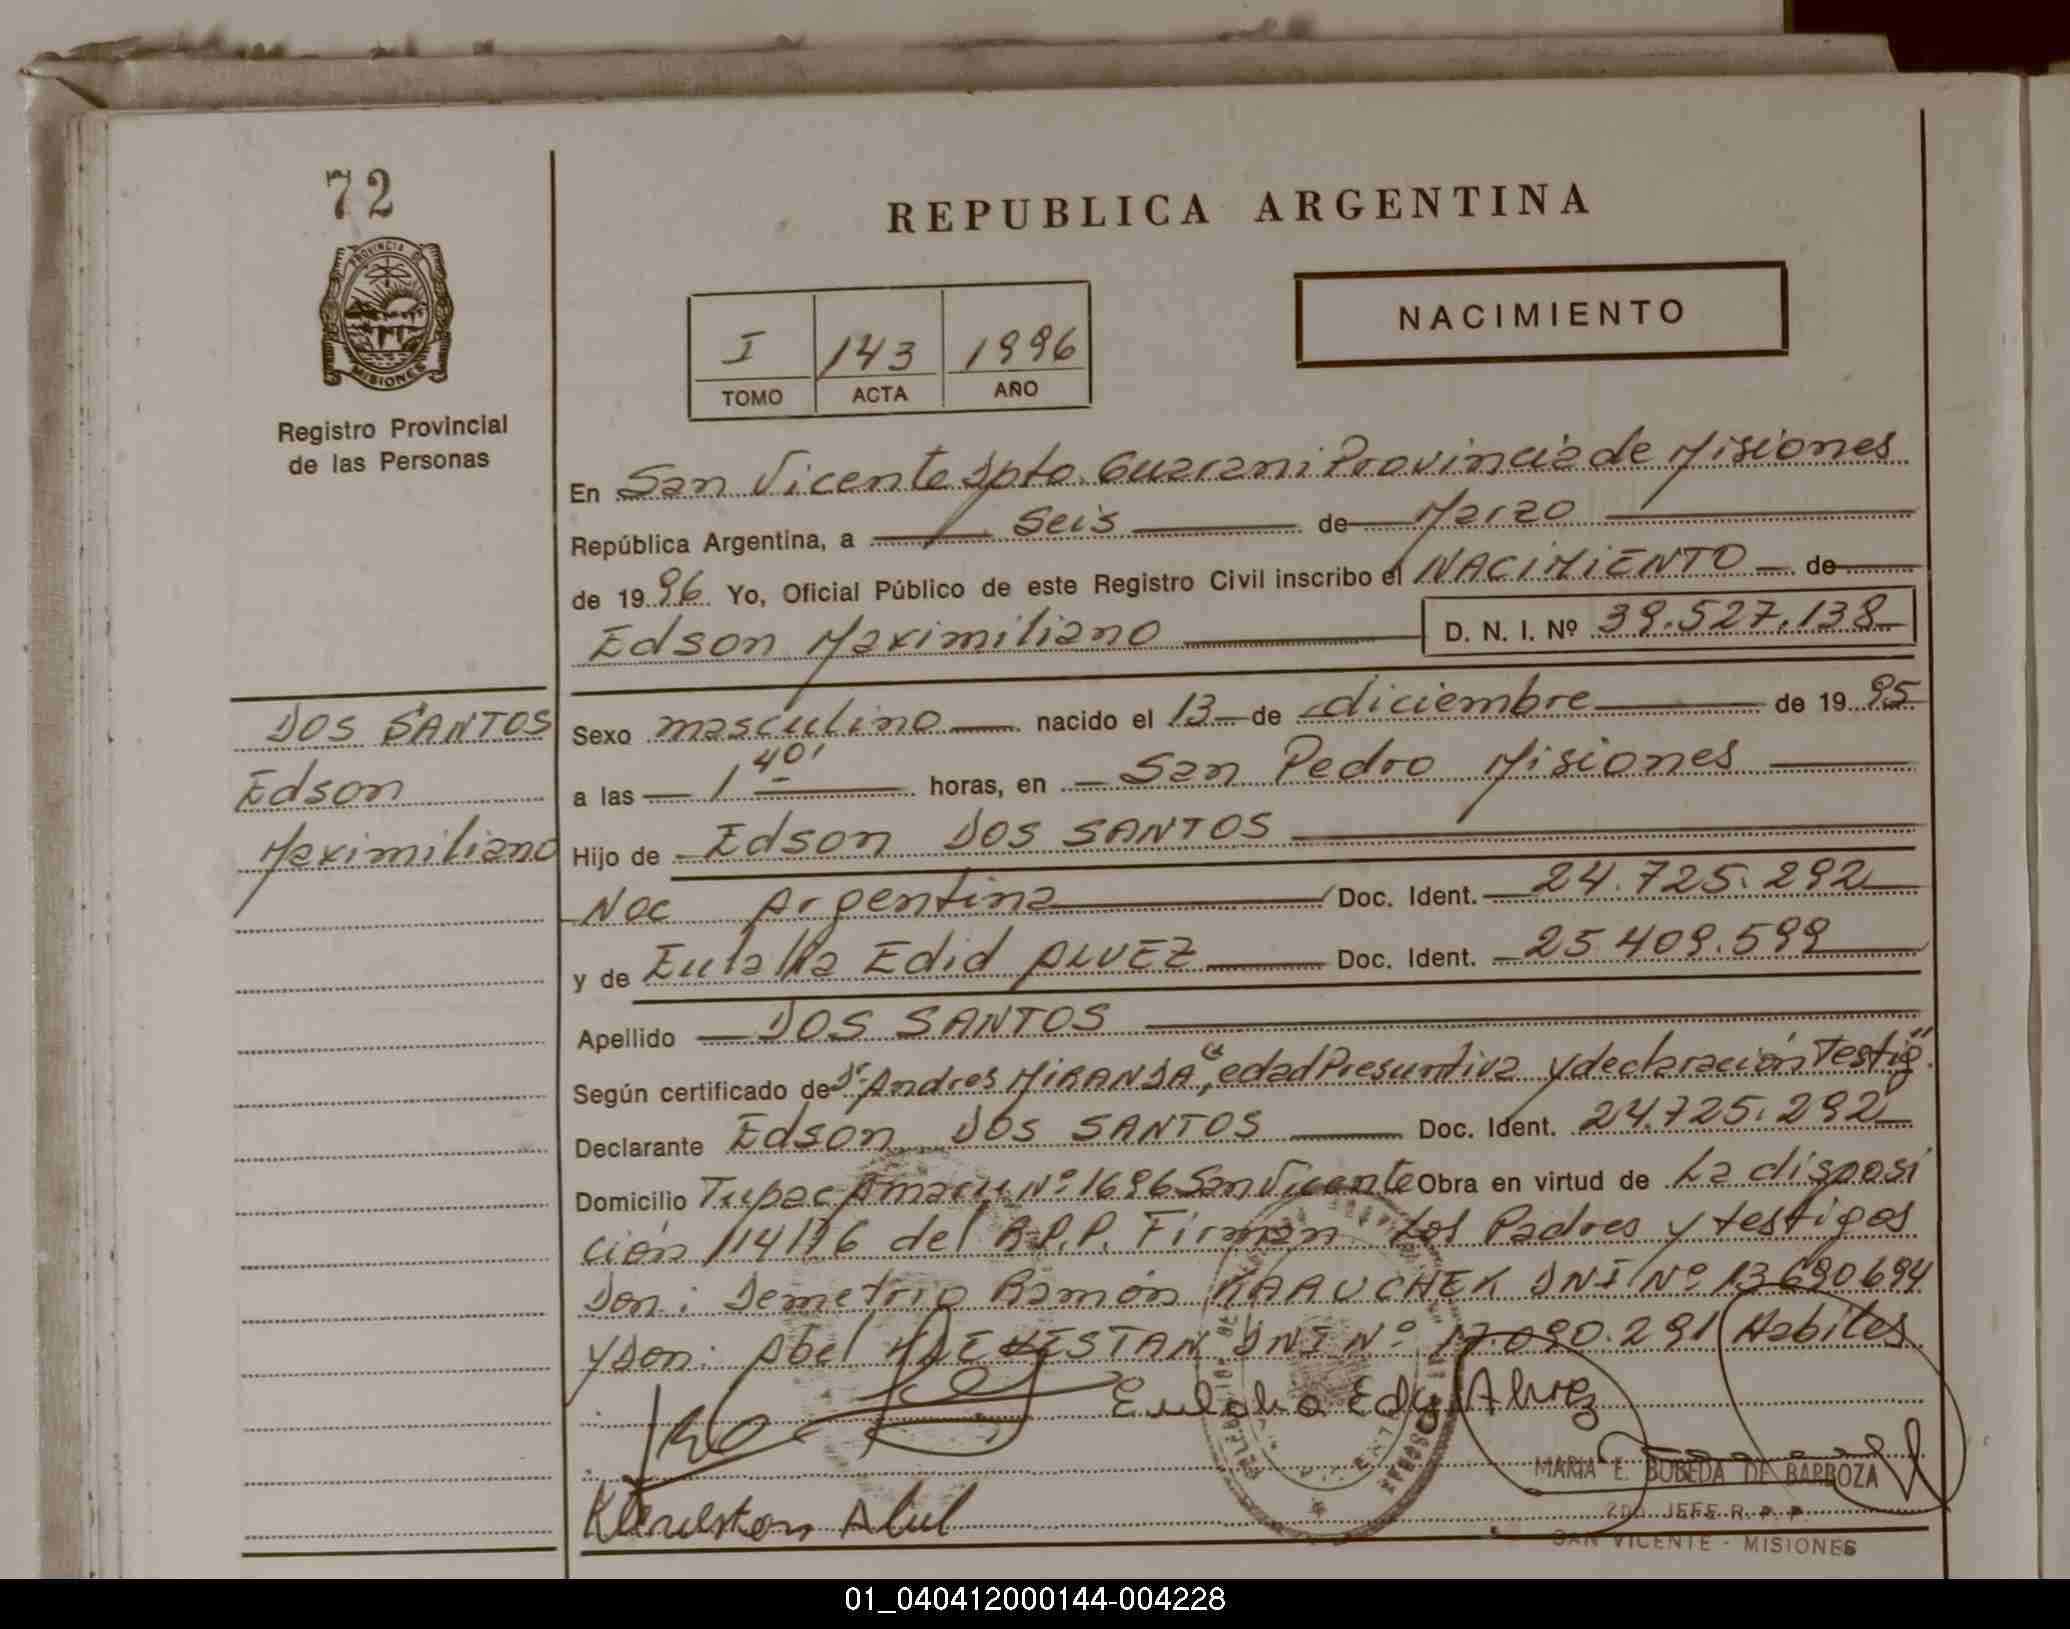 72
PROVINCIA DE
MISIONES
Registro Provincial
de las Personas
REPUBLICA ARGENTINA
NACIMIENTO
I 143 1996
TOMO ACTA AÑO
En San Vicente Dpto. Guarani Provincia de Misiones
República Argentina, a Seis de Marzo
de 19 96 Yo, Oficial Público de este Registro Civil inscribo el NACIMIENTO de
Edson Maximiliano D. N. I. Nº 39.527.138
DOS SANTOS
Edson
Maximiliano
Sexo masculino nacido el 13 de diciembre de 19 95
a las 1 40' horas, en San Pedro Misiones
Hijo de Edson DOS SANTOS
Nac Argentina Doc. Ident. 24.725.292
y de Eulalia Edid ALVEZ Doc. Ident. 25.409.599
Apellido DOS SANTOS
Según certificado de Dr. Andres MIRANDA, "edad Presuntiva y declaración Testig".
Declarante Edson DOS SANTOS Doc. Ident. 24.725.292
Domicilio Tupac Amaru Nº 1696 San Vicente Obra en virtud de La disposi
ción 114/76 del R.P.P. Firman Los Padres y testigos
Don: Demetrio Ramón DNI Nº 13690694
y Don: Abel DNI Nº 17.090.291 Habiles
Eulalia Edid Alvez
MARIA E. BOBEDA DE BARBOZA
2DO. JEFE R. P. P.
SAN VICENTE - MISIONES
Abel
01_040412000144-004228